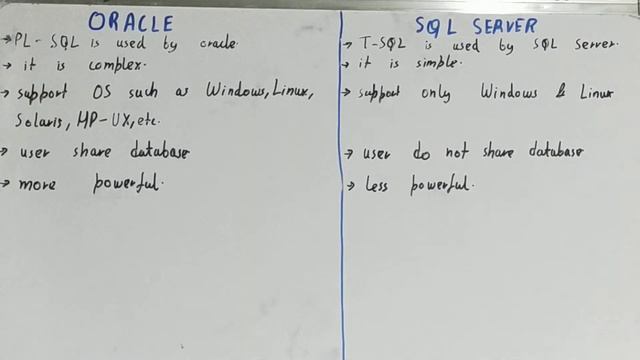 ORACLE
→ PL-SQL is used by oracle.
→ it is complex.
→ support OS such as Windows, Linux,
Solaris, HP-UX, etc.
→ user share database
→ more powerful.
SQL SERVER
→ T-SQL is used by SQL Server.
→ it is simple.
→ support only Windows & Linux
→ user do not share database
→ Less powerful.